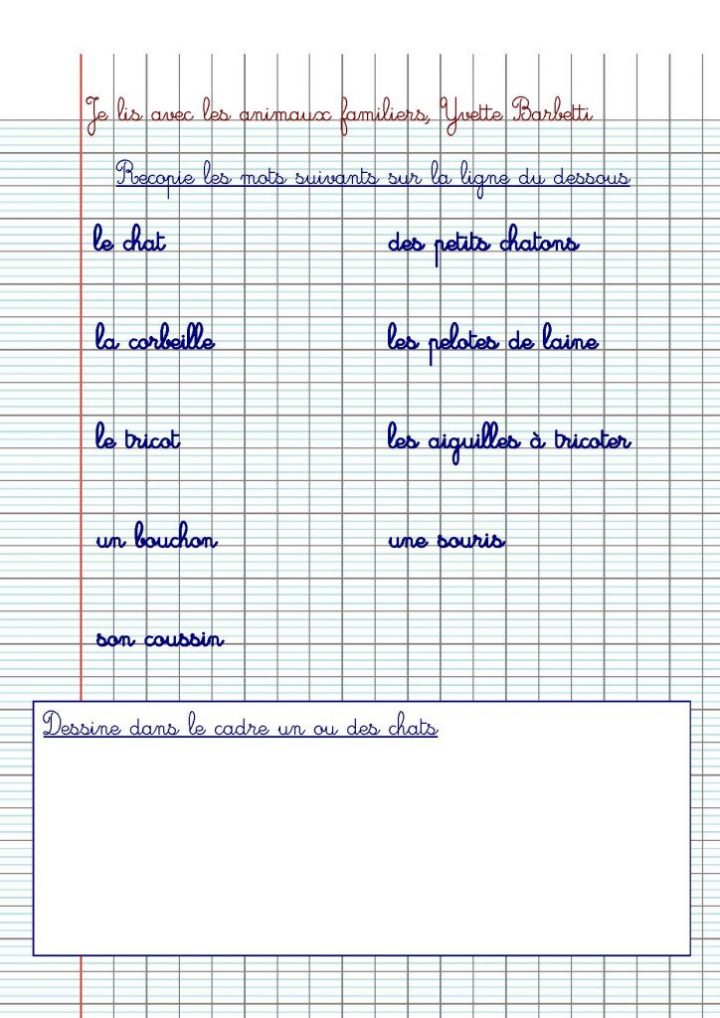 Je lis avec les animaux familiers, Yvette Barbetti
Recopie les mots suivants sur la ligne du dessous
le chat des petits chatons
la corbeille les pelotes de laine
le tricot les aiguilles à tricoter
un bouchon une souris
son coussin
Dessine dans le cadre un ou des chats